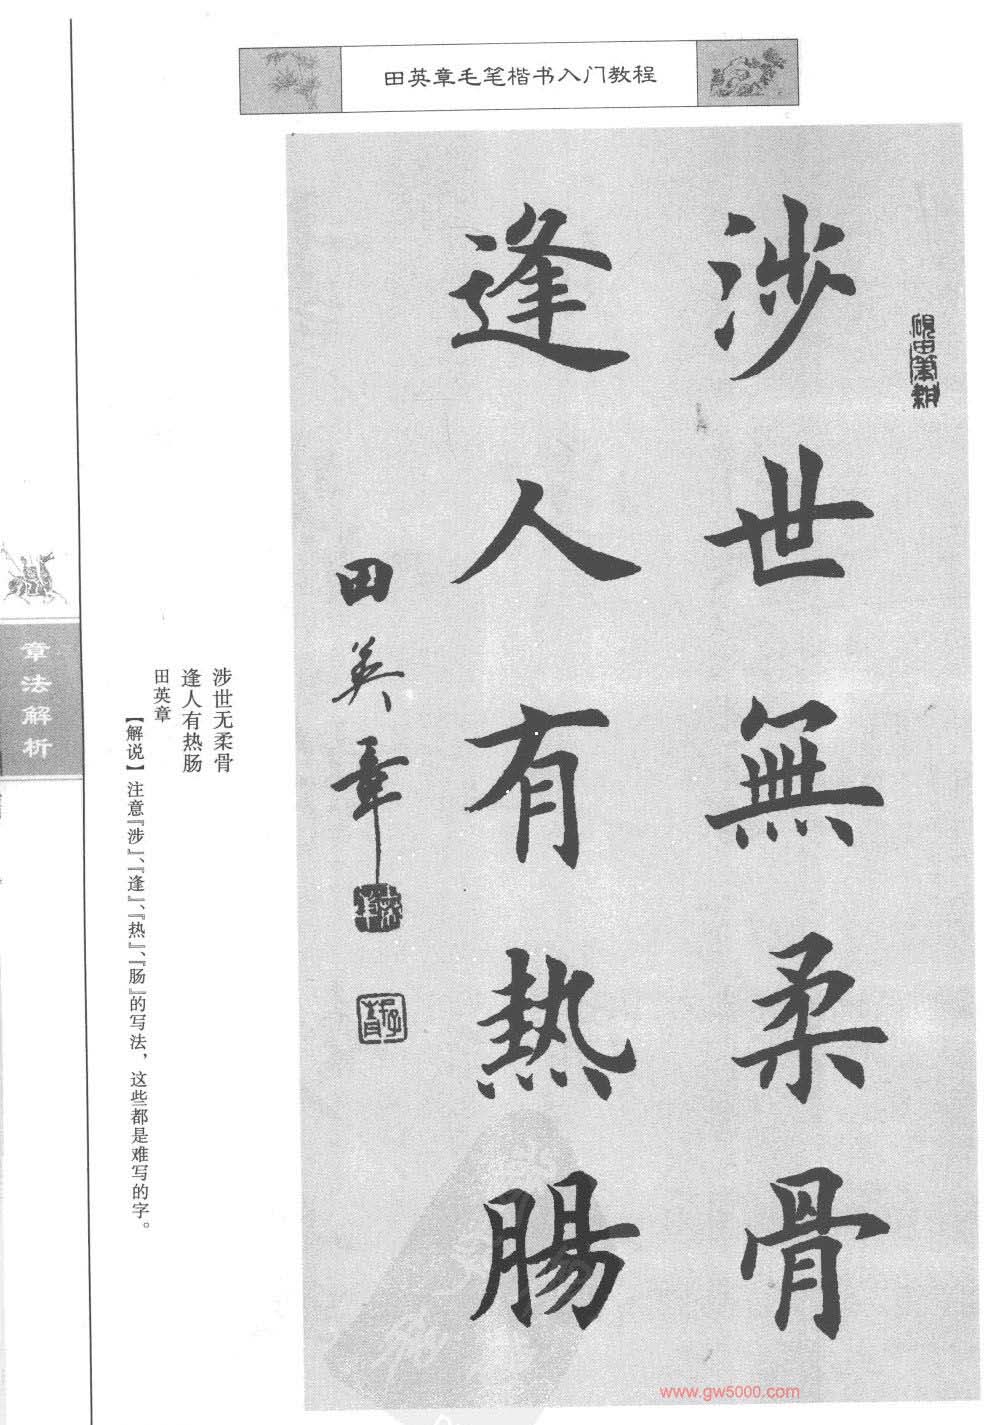 田英章毛笔楷书入门教程
涉世無柔骨
逢人有熱腸
田英章
砚田笔耕
涉世无柔骨
逢人有热肠
田英章
【解说】注意『涉』、『逢』、『热』、『肠』的写法，这些都是难写的字。
章法解析
www.gw5000.com